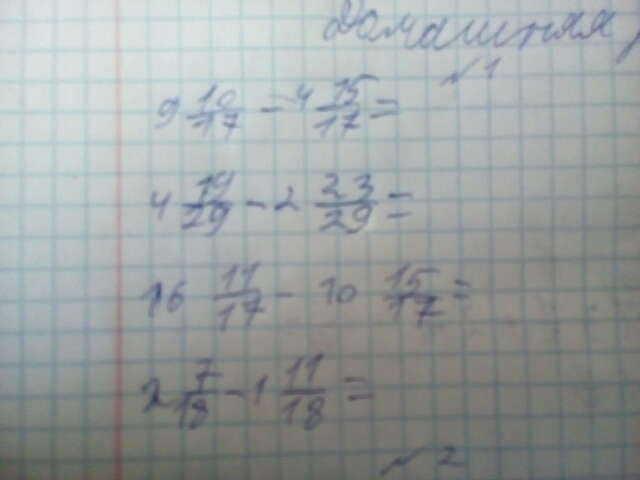 Домашняя
№1
9 10/17 - 4 15/17 =
4 14/29 - 2 23/29 =
16 11/17 - 10 15/17 =
2 7/18 - 1 11/18 =
№2